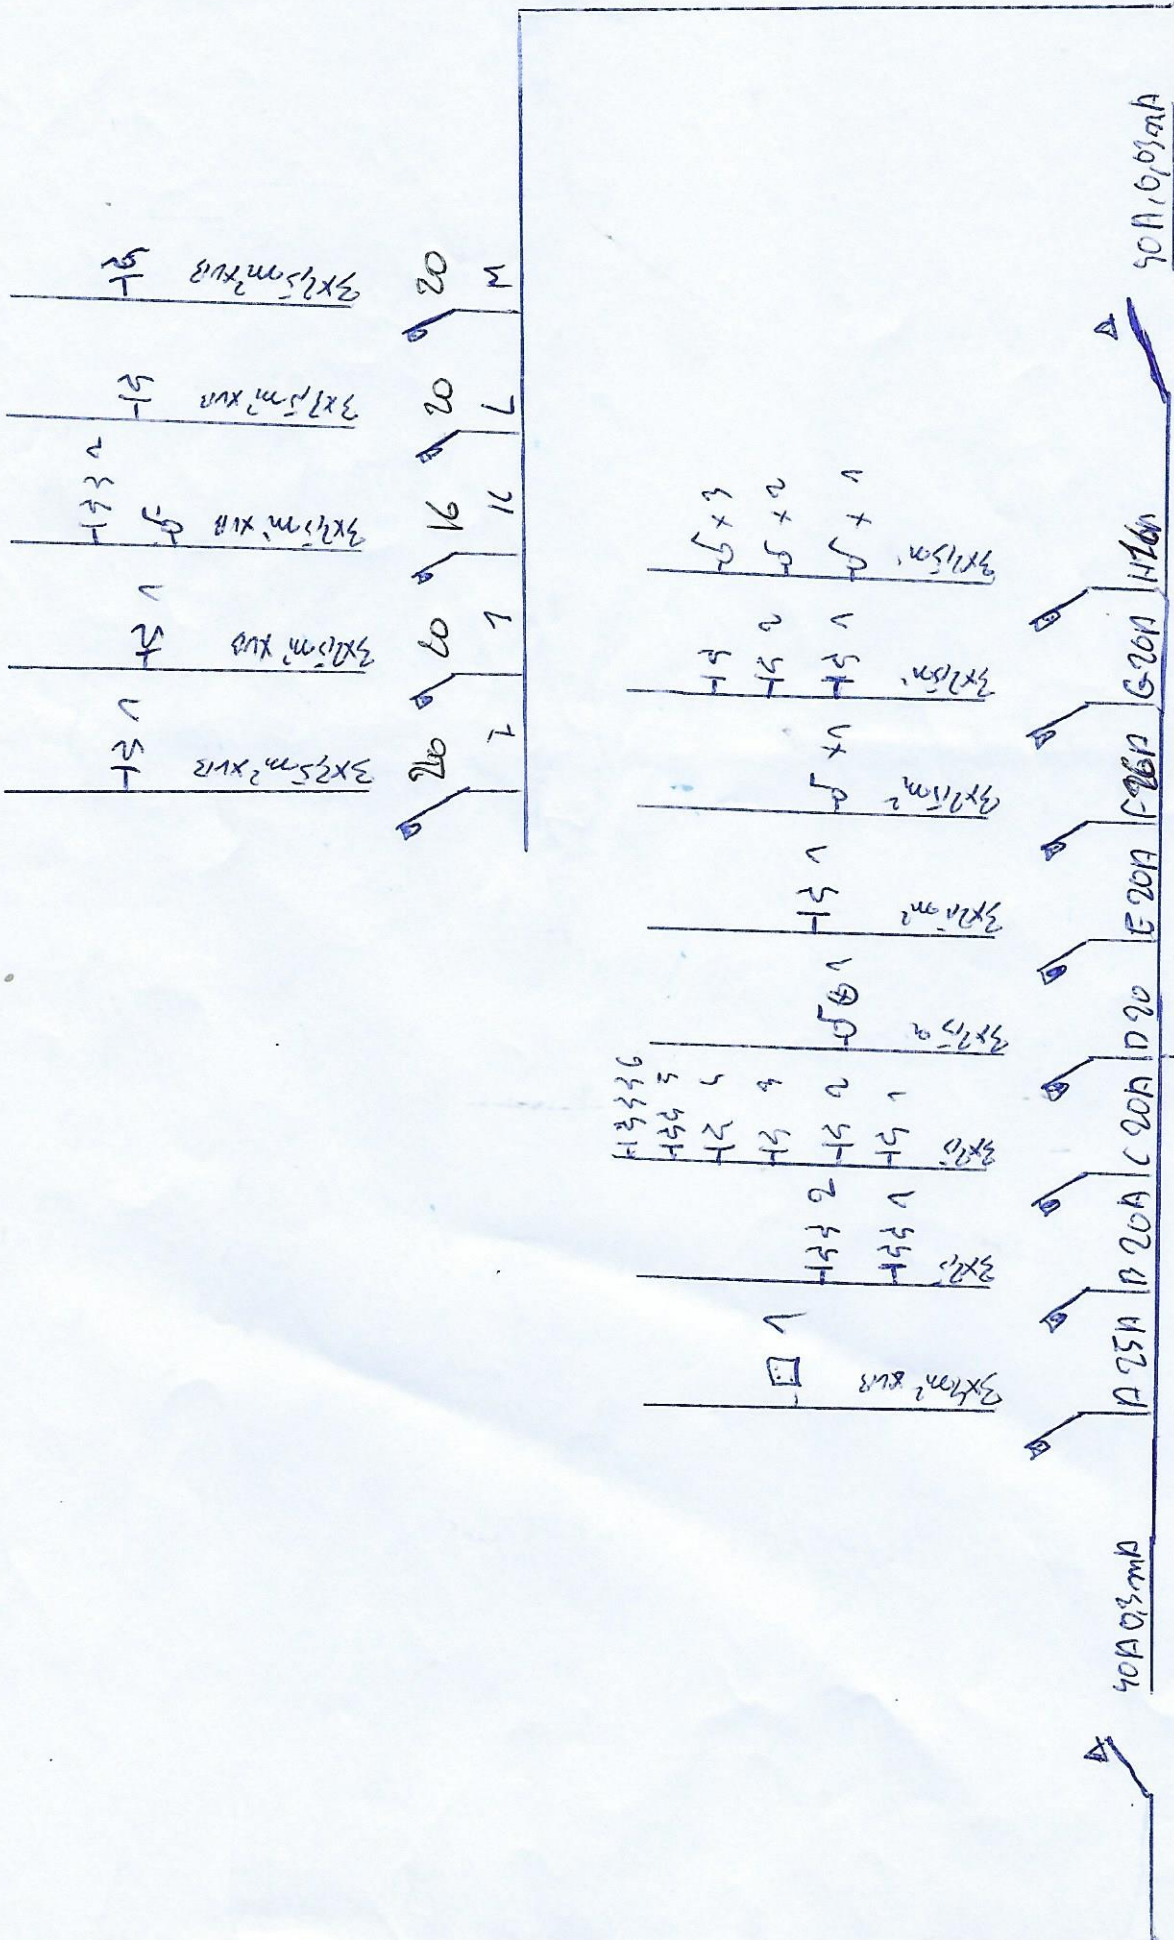 40A 0,3mA
A 25A
3x4m² XVB
1
B 20A
3x2,5
1
2
C 20A
3x2,5
1
2
3
5
6
D 20
1
E 20A
3x2,5m²
1
3x2,5m²
x1
G 20A
3x2,5m²
1
2
H16A
3x1,5m²
x 1
x 2
x 3
40A, 0,03mA
I
20
3x2,5m² XVB
1
J
20
3x2,5m² XVB
1
K
16
3x2,5m² XVB
L
20
3x2,5m² XVB
M
20
3x2,5m² XVB